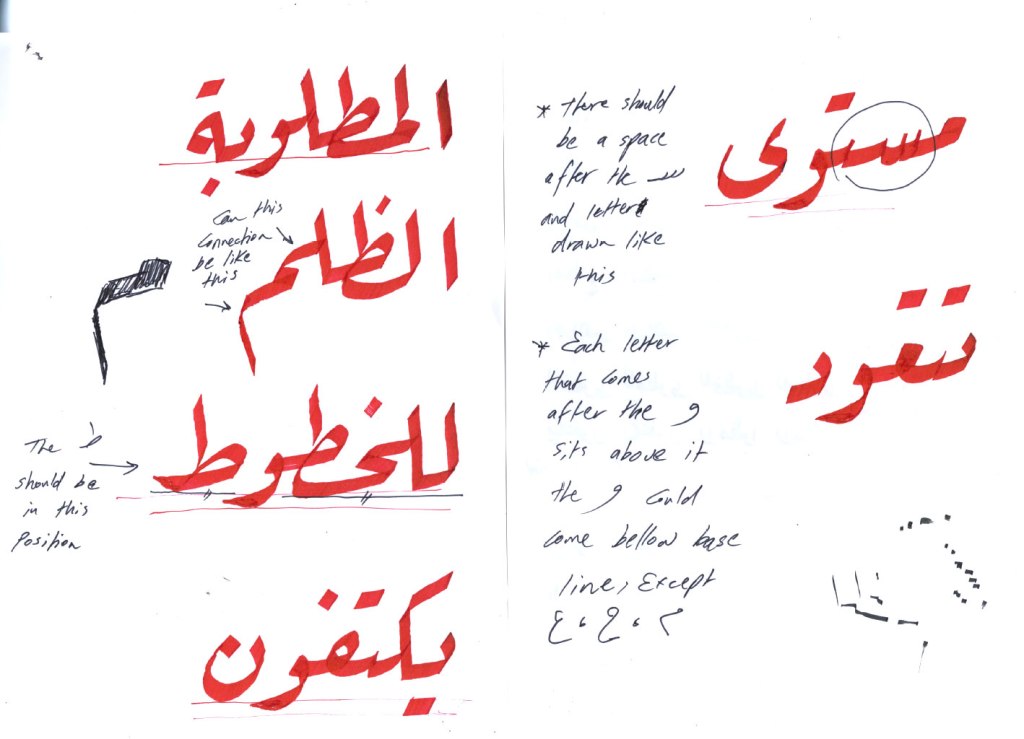 المطلوبة
can this
connection
be like
this
الظلم
The ط
should be
in this
position
للخطوط
يكتفون
* there should
be a space
after the سـ
and letter
drawn like
this
مستوى
* Each letter
that comes
after the و
sits above it
the و could
come bellow base
line, Except
ع ، ح ، م
تقود